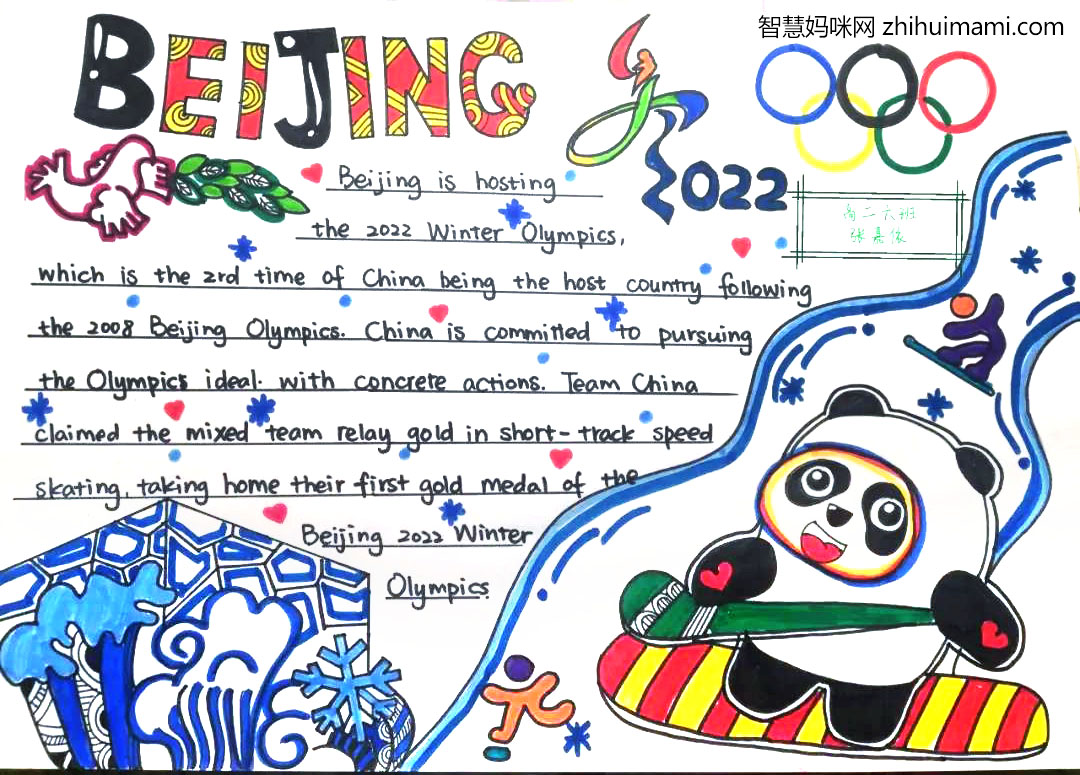 智慧妈咪网 zhihuimami.com
BEIJING
2022
高二六班
张嘉依
Beijing is hosting
the 2022 Winter Olympics,
which is the 2rd time of China being the host country following
the 2008 Beijing Olympics. China is committed to pursuing
the Olympics ideal. with concrete actions. Team China
claimed the mixed team relay gold in short-track speed
skating, taking home their first gold medal of the
Beijing 2022 Winter
Olympics